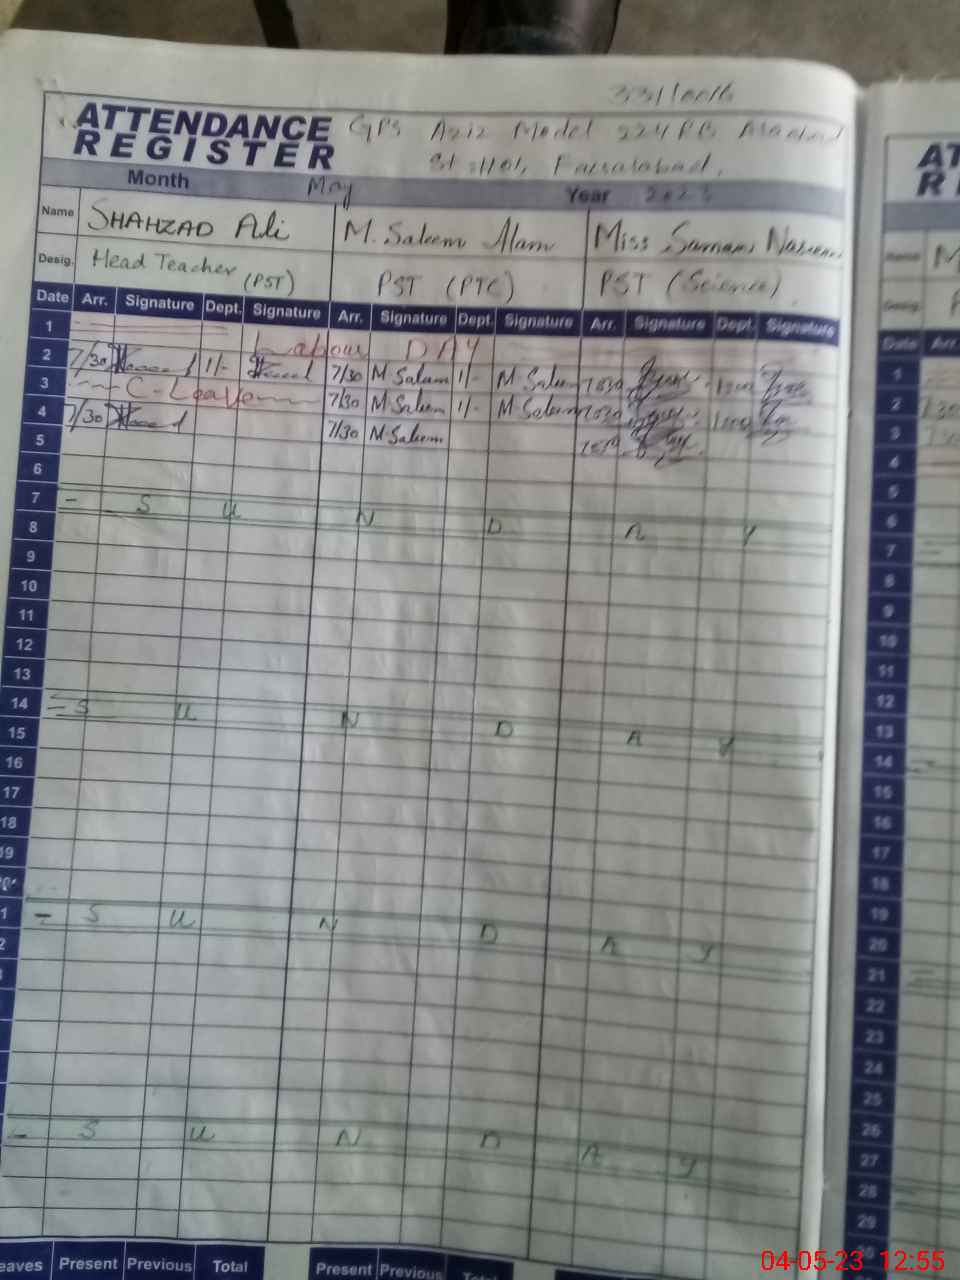 33110016
ATTENDANCE REGISTER
GPS Aziz Model 224 RB
St # 1101, Faisalabad.
Month May Year 2023
Name SHAHZAD Ali M. Saleem Alam Miss
Desig. Head Teacher (PST) PST (PTC) PST (Science)
Date Arr. Signature Dept. Signature Arr. Signature Dept. Signature Arr. Signature Dept. Signature
1 Labour DAY
2 7/30 1/- 7/30 M Salam 1/- M Salem
3 C-Leave 7/30 M Salem 1/- M Salem
4 7/30 7/30 M. Saleem
5
6
7 - S U N D A Y
8
9
10
11
12
13
14 - S U N D A Y
15
16
17
18
19
20
1 - S U N D A Y
2
- S U N D A Y
eaves Present Previous Total Present Previous Total
AT
R
M
Date Arr.
1
2
3
4
5
6
7
8
9
10
11
12
13
14
15
16
17
18
19
20
21
22
23
24
25
26
27
28
29
30
04-05-23 12:55